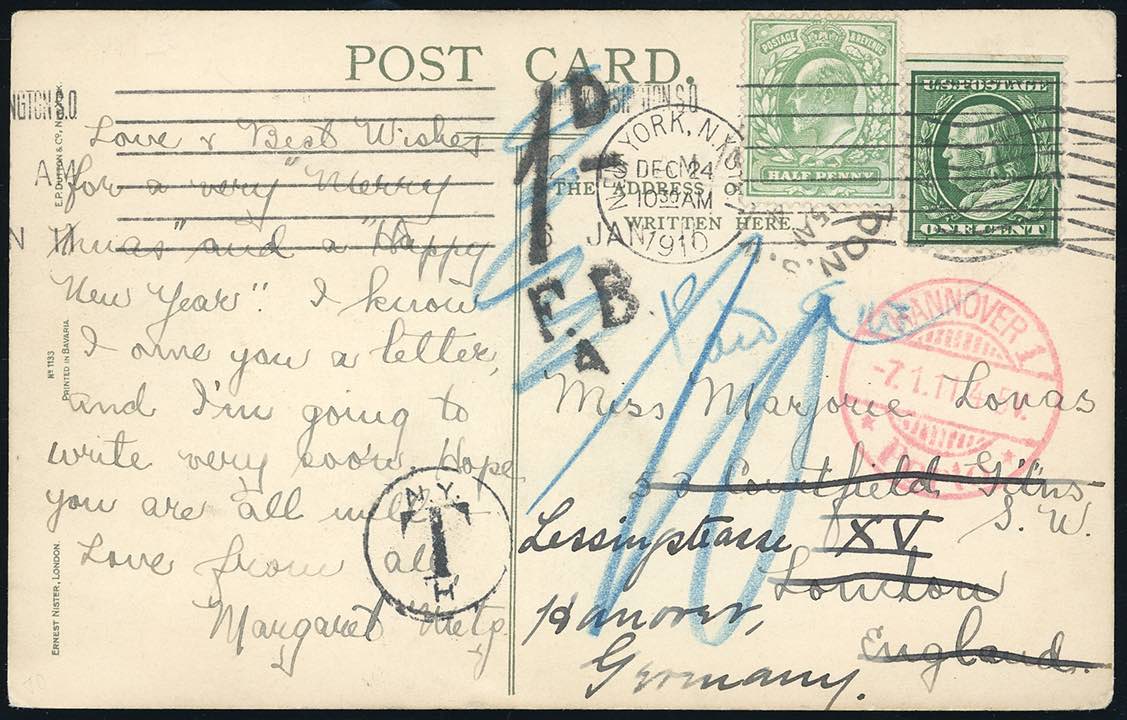 POST CARD.
POSTAGE & REVENUE
HALF PENNY
U.S. POSTAGE
ONE CENT
NGTON S.Q
NEW YORK, N.Y.
DEC 24
10 30 AM
1910
1D
F.B.
A
JAN
THE ADDRESS
WRITTEN HERE.
Love & Best Wishes
for a very "Merry
Xmas" and a "Happy
New Year". I know
I owe you a letter,
and I'm going to
write very soon. Hope
you are all well.
Love from all
Margaret Metz.
N.Y.
T
H
HANNOVER 1
-7.1.11. 4-5N.
Miss Marjorie Lovas
Courtfield Gd'ns
S.W.
London
England.
Lessingstrasse XV
Hanover,
Germany.
E.P. DUTTON & CO, N.Y.
No 1133
PRINTED IN BAVARIA
ERNEST NISTER, LONDON.